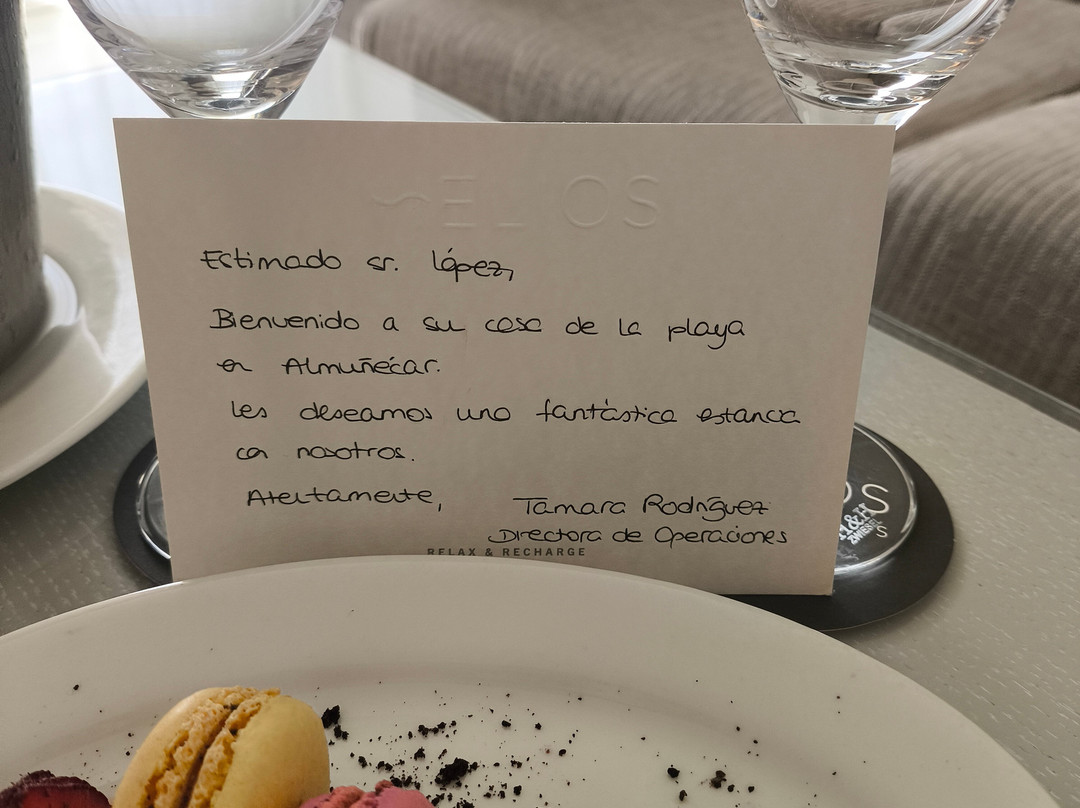 ~ELIOS
Estimado sr. López,
Bienvenido a su casa de la playa
en Almuñécar.
les deseamos una fantástica estancia
con nosotros.
Atentamente,
Tamara Rodríguez
Directora de Operaciones
RELAX & RECHARGE
S
ZWIESEL
S